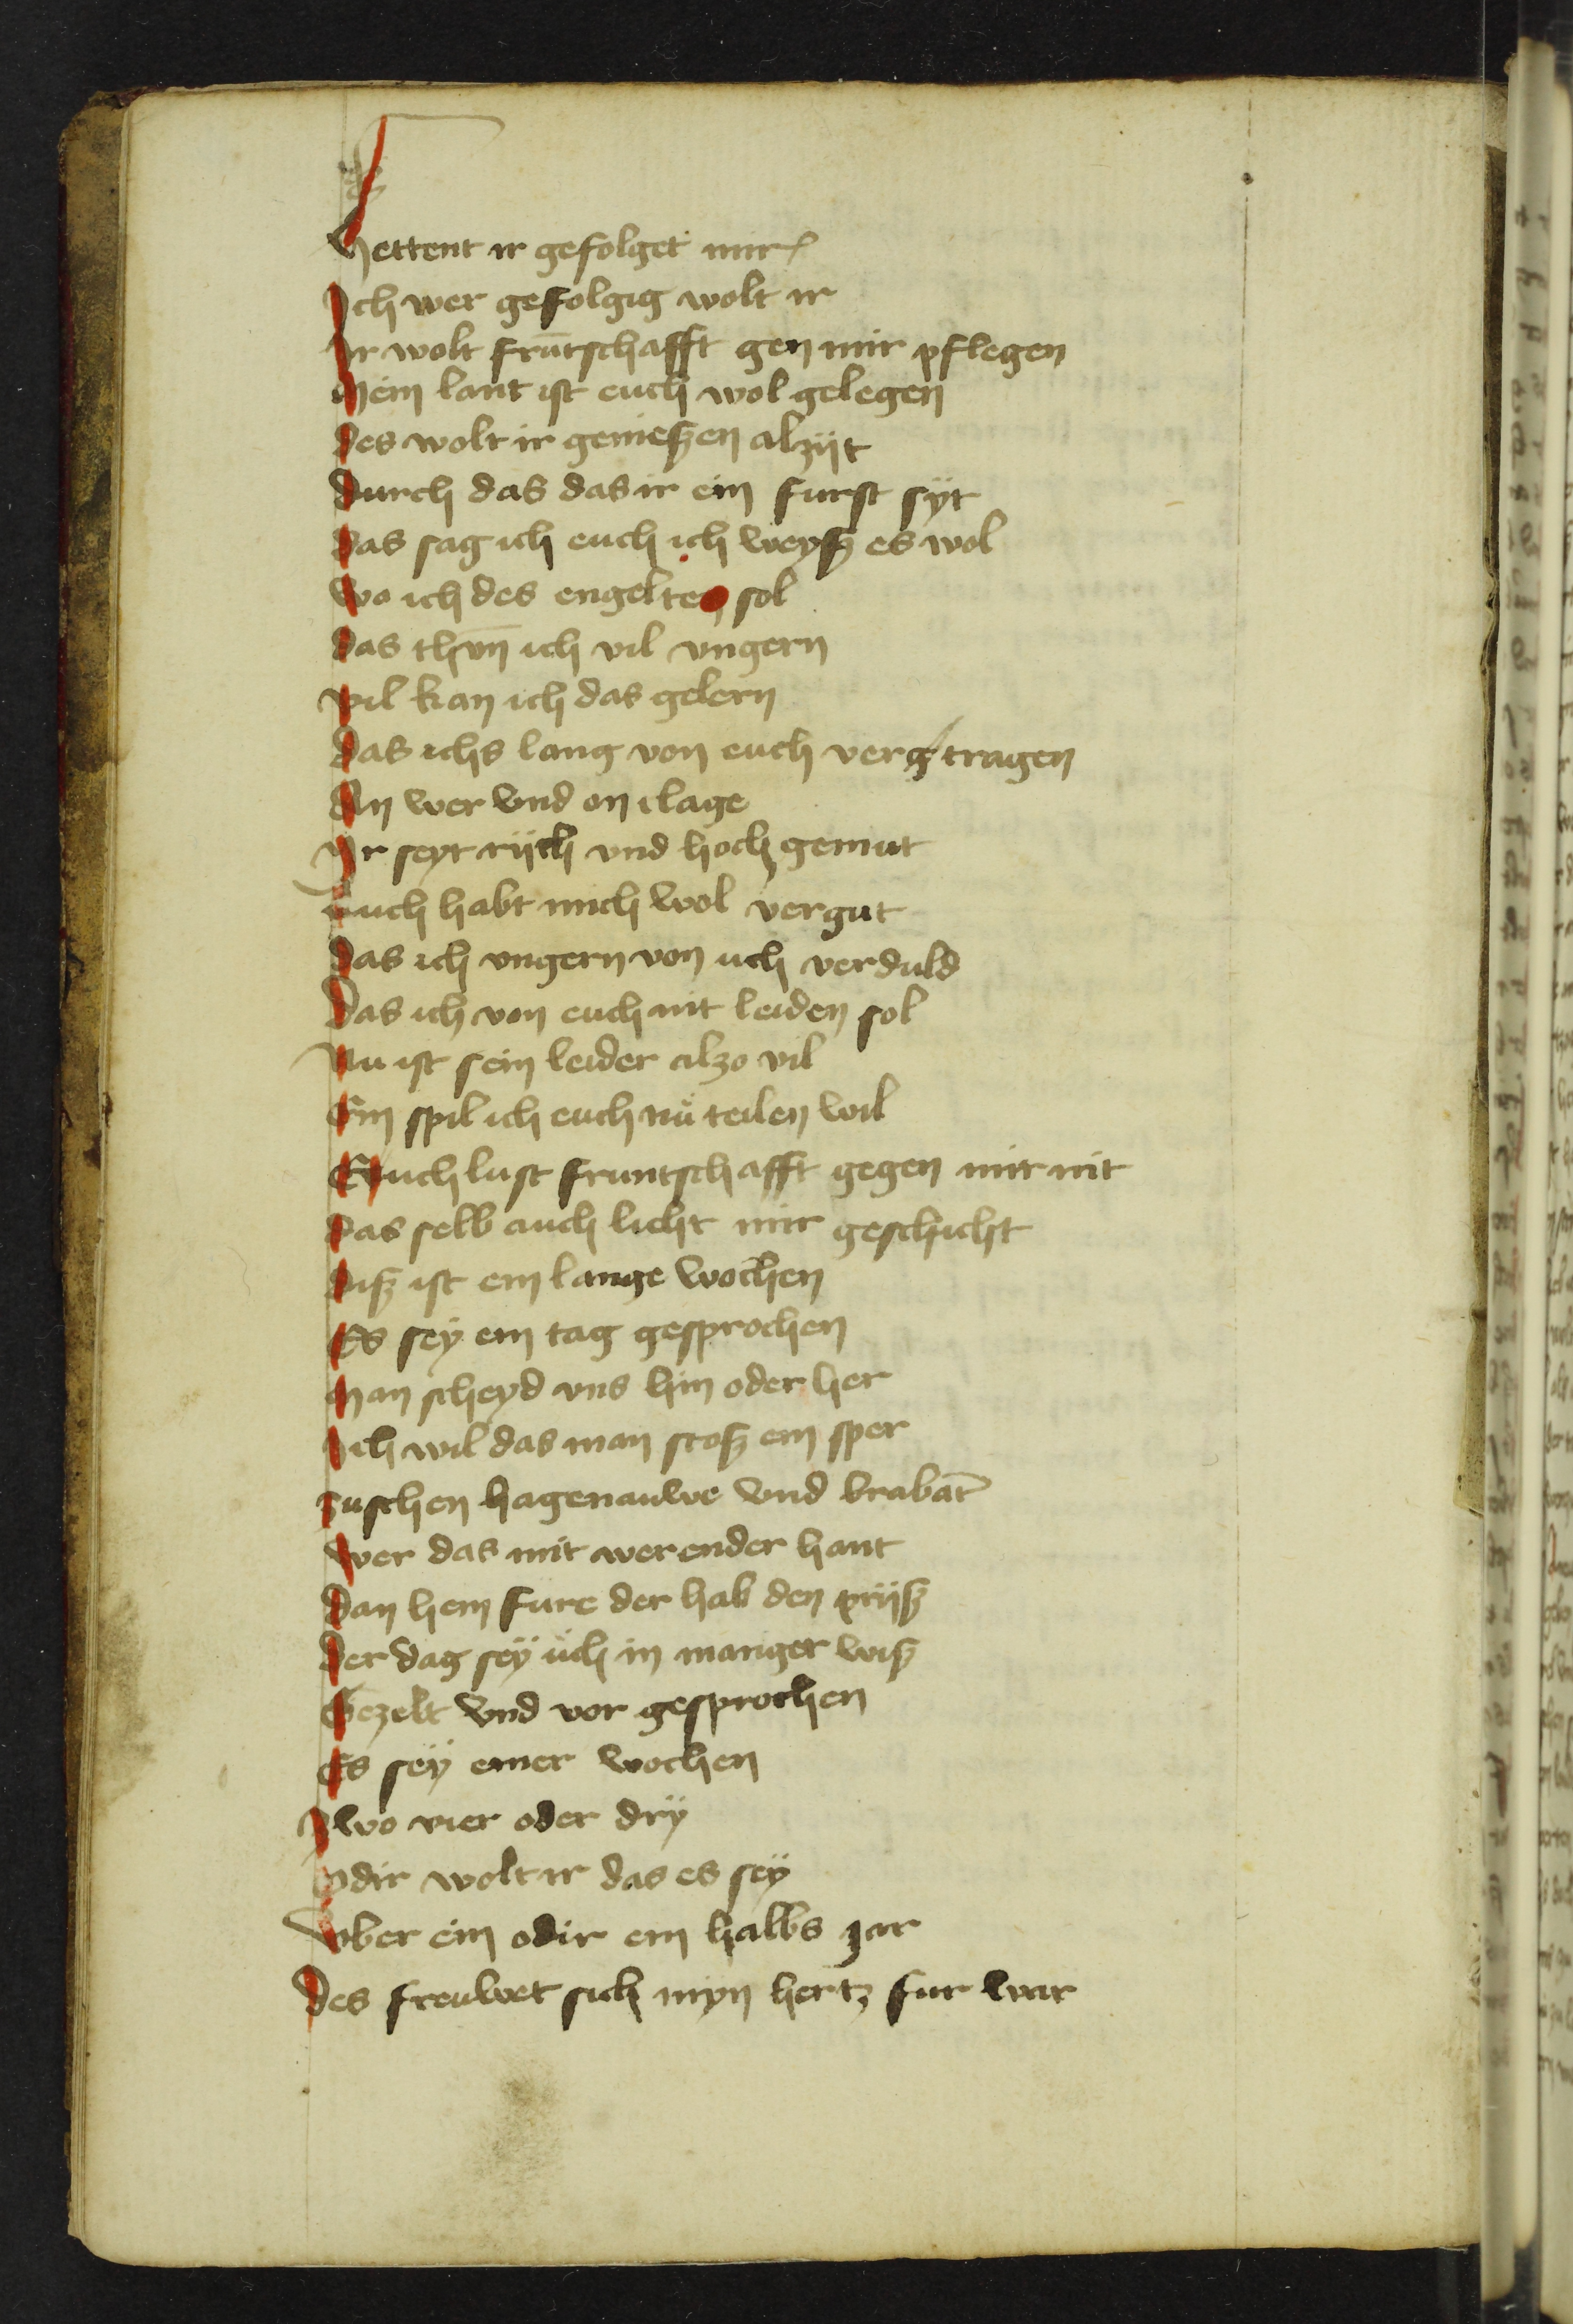 Hettent ir gefolget mir
Ich wer gefolgig wolt ir
Ir wolt frūtschafft gen mir pflegen
Mein lant ist euch wol gelegen
Des wolt ir genießen alzijt
Durch das das ir ein furst syt
Das sag ich euch ich weyß es wol
Wo ich des engelten sol
Das thun̄ ich vil vngern
Vil kan ich das gelern
Das ichs lang von euch verg tragen
An wer vnd on clage
Ir seyt rijch vnd hoch gemut
Auch habt mich wol vergut
Das ich vngern von uch verduld
Das ich von euch nit leiden sol
Nu ist sein leider alzo vil
Ein spil ich euch nů teilen wil
Euch lust fruntschafft gegen mir nit
Das selb auch licht mir geschicht
Diß ist ein lange wochen
Es sey ein tag gesprochen
Man scheyd vns hin oder her
Ich wil das man stoß ein sper
Zuschen hagenauwe vnd brabāt
Wer das mit werender hant
Dan hein fure der hab den prijß
Der dag sey uch in manger wiß
Gezelt vnd vor gesprochen
Es sey einer wochen
Zwo vier oder dry
Odir wolt ir das es sey
Vber ein odir ein halbs jar
Des freuwet sich myn hertz fur war